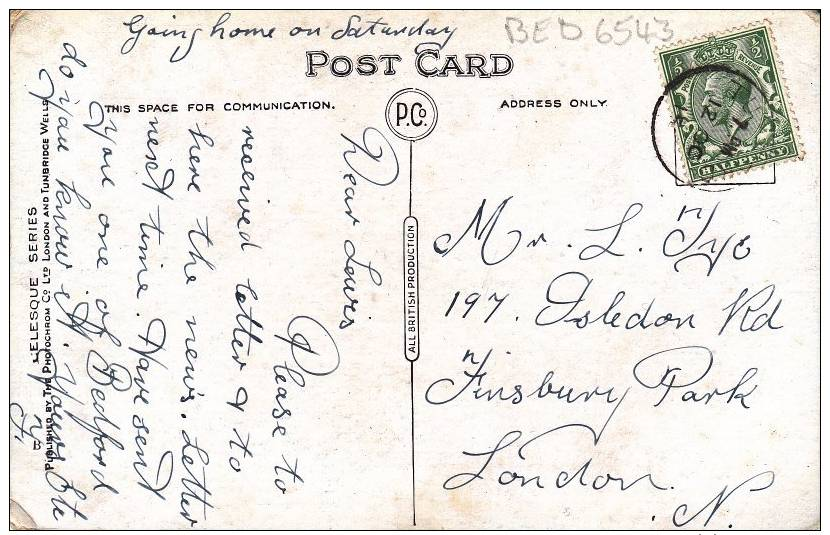 Going home on Saturday
BED 6543
POST CARD
THIS SPACE FOR COMMUNICATION.
P.Co.
ADDRESS ONLY.
HALFPENNY
Dear Lewis
Please to
received letter & to
here the news. Letter
next time. Have sent
you one of Bedford
do you know it. Yours etc
ALL BRITISH PRODUCTION
Mr. L. Tye
197. Isledon Rd
Finsbury Park
London.
N.
CELESQUE SERIES
PUBLISHED BY THE PHOTOCHROM CO LTD LONDON AND TUNBRIDGE WELLS